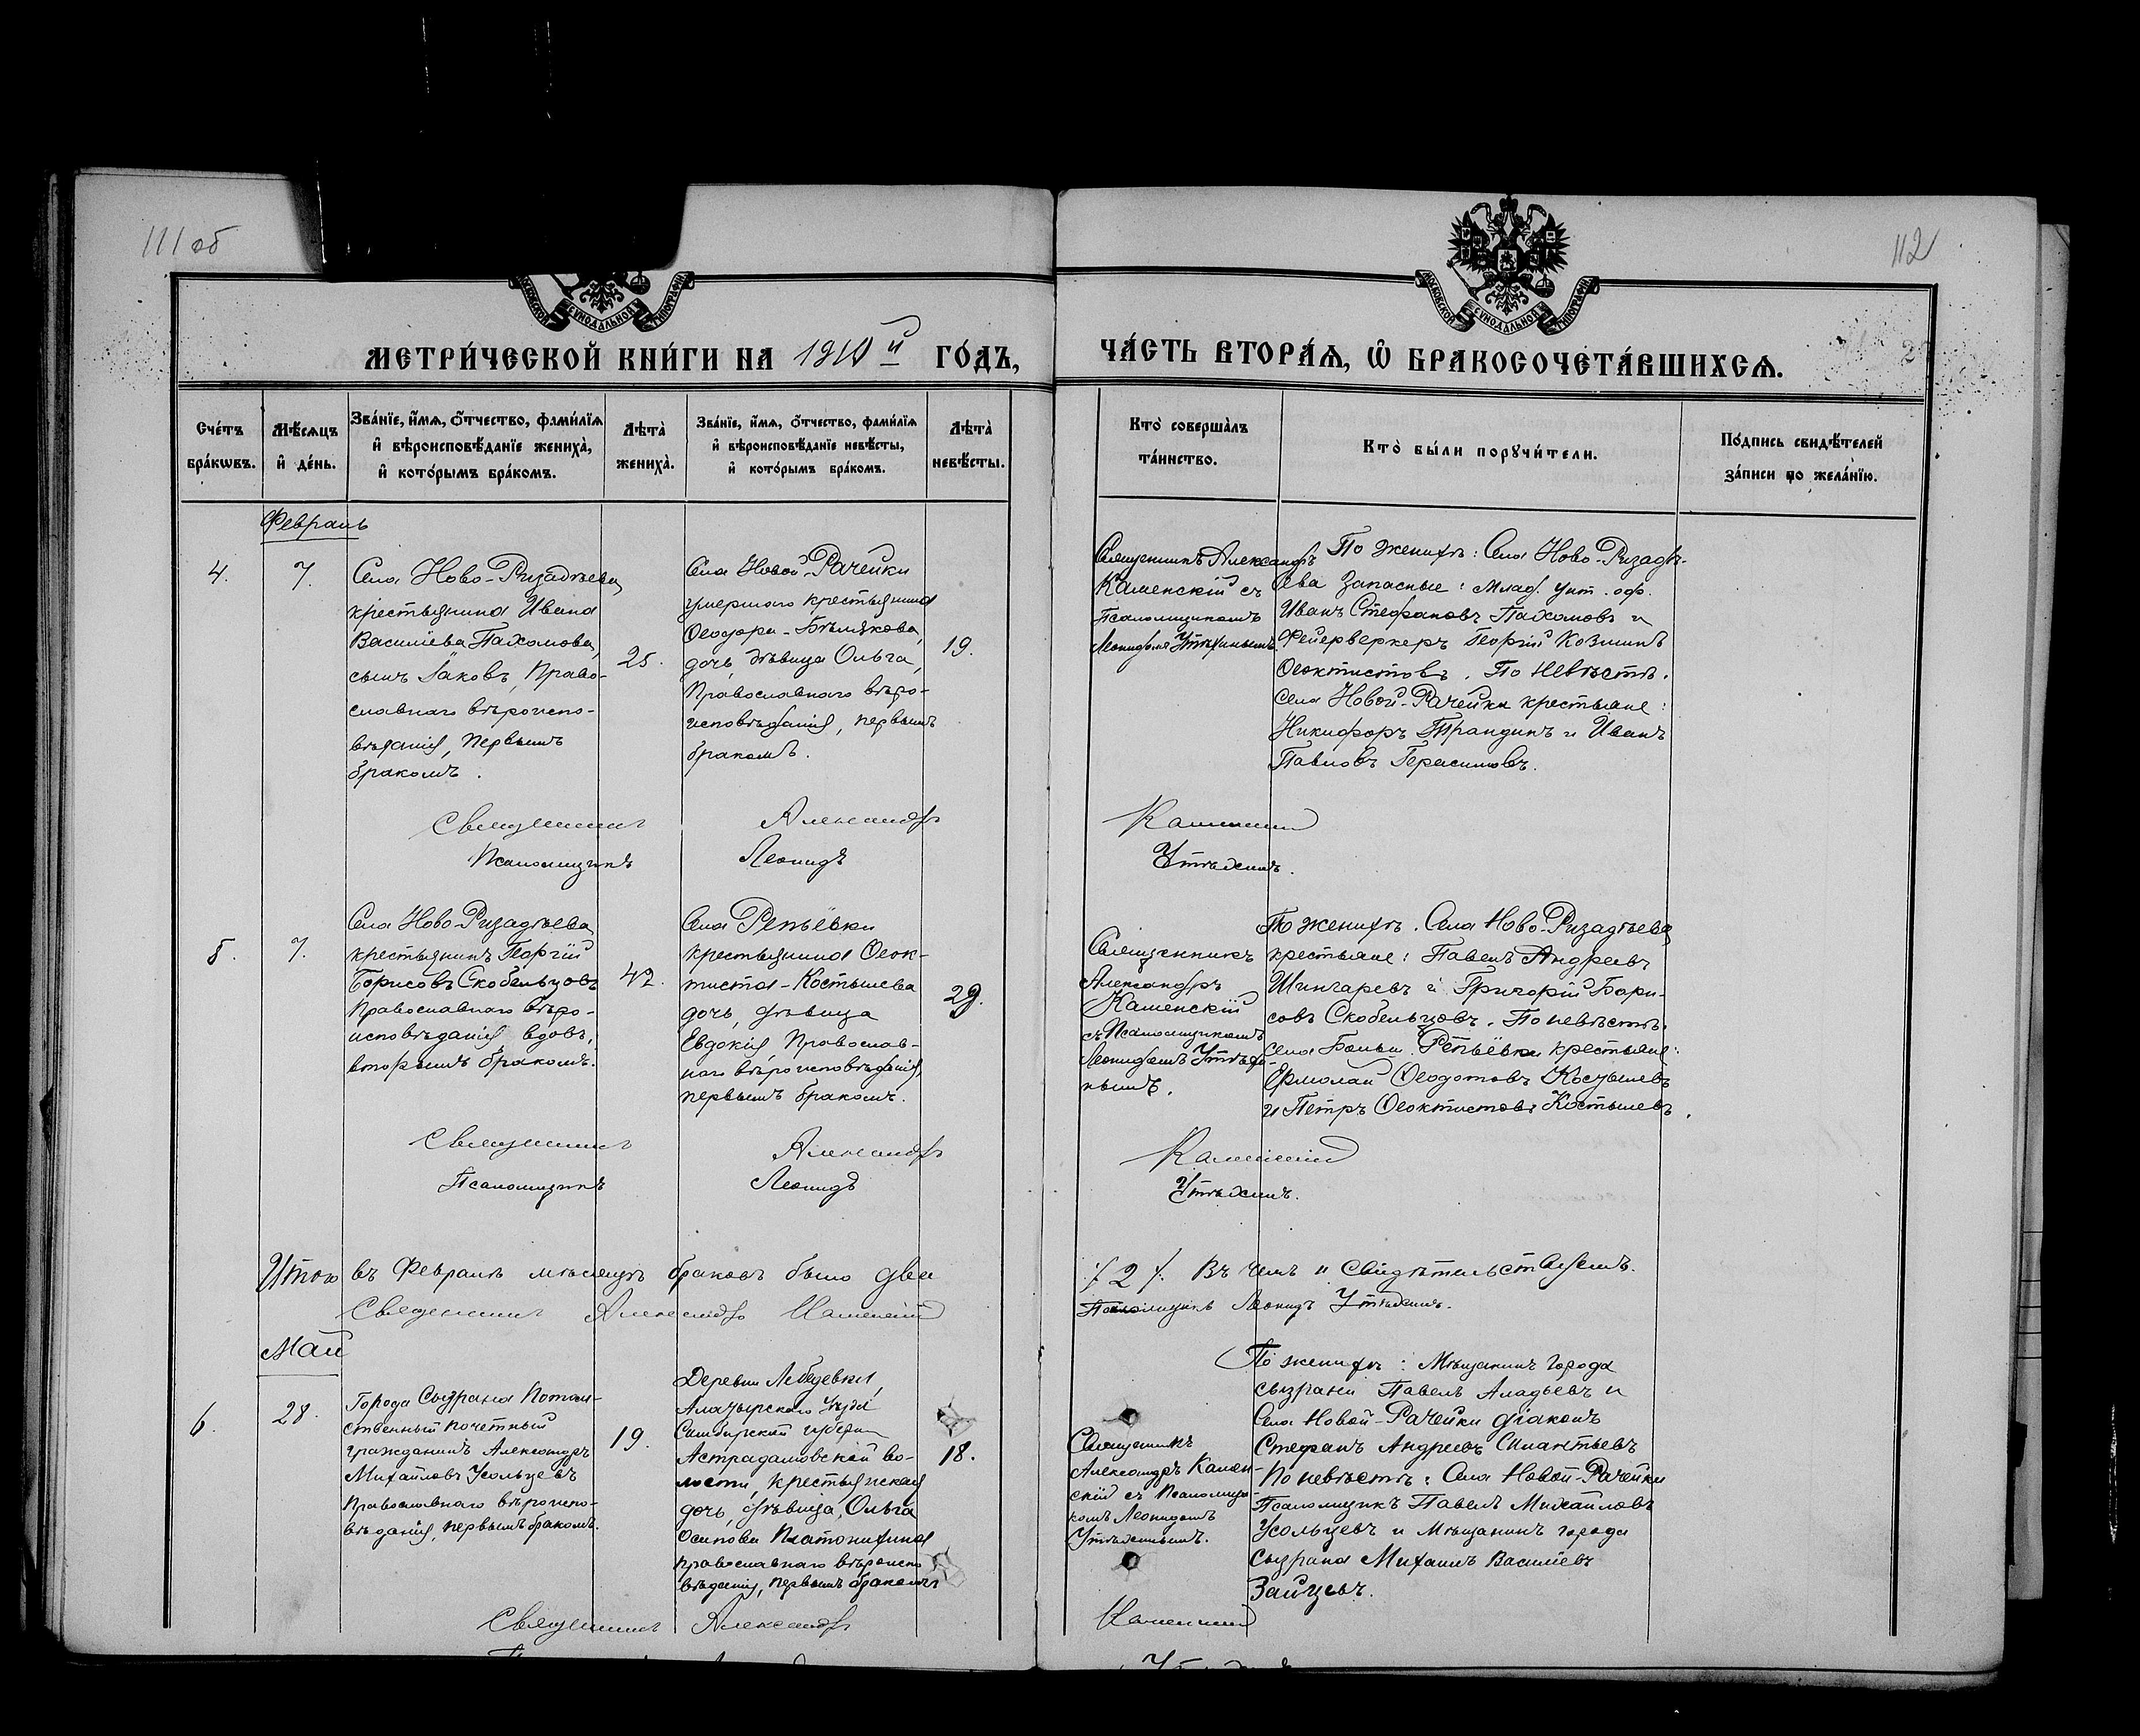 111 об
112
МОСКОВСКОЙ СѴНОДАЛЬНОЙ ТИПОГРАФІИ
МОСКОВСКОЙ СѴНОДАЛЬНОЙ ТИПОГРАФІИ
МЕТРИ́ЧЕСКОЙ КНИ́ГИ НА 1910 й ГО́ДЪ,
ЧА́СТЬ ВТОРА́Ѧ, Ѽ БРАКОСОЧЕТА́ВШИХСѦ.
Сче́тъ бра́кѡвъ.
Мѣ́сѧцъ и҆ де́нь.
Зва́нїе, и҆́мѧ, ѻ҆́тчество, фами́лїѧ
и҆ вѣроисповѣ́данїе жениха̀,
и҆ кото́рымъ бра́комъ.
Лѣта̀ жениха̀.
Зва́нїе, и҆́мѧ, ѻ҆́тчество, фами́лїѧ
и҆ вѣроисповѣ́данїе невѣ́сты,
и҆ кото́рымъ бра́комъ.
Лѣта̀ невѣ́сты.
Кто̀ соверша́лъ
та́инство.
Кто̀ бы́ли порꙋчи́тели.
По́дпись свидѣ́телей
за́писи по жела́нїю.
Февраль
4.
7.
Села Ново-Ризадѣева,
крестьянина Ивана
Васильева Пахомова,
сынъ Іаковъ, Право-
славнаго вѣроиспо-
вѣданія, первымъ
бракомъ.
25.
Села Новой-Рачейки
умершаго крестьянина
Ѳеодора Бѣлякова,
дочь, дѣвица Ольга,
Православнаго вѣро-
исповѣданія, первымъ
бракомъ.
19.
Священникъ Александръ
Каменскій съ
Псаломщикомъ
Леонидомъ Утѣхинымъ.
По женихѣ: Села Ново-Ризадѣ-
ева Запасные: Млад. унт. оф.
Иванъ Стефановъ Пахомовъ и
Фейерверкеръ Георгій Козминъ
Ѳеоктистовъ. По невѣстѣ.
Села Новой-Рачейки крестьяне:
Никифоръ Трандинъ и Иванъ
Павловъ Герасимовъ.
Священникъ Александръ Каменскій
Псаломщикъ Леонидъ Утѣхинъ.
5.
7.
Села Ново-Ризадѣева
крестьянинъ Георгій
Борисовъ Скобельцовъ
Православнаго вѣро-
исповѣданія вдовъ,
вторымъ бракомъ.
42.
Села Репьёвки
крестьянина Ѳеок-
тиста Костылева
дочь, дѣвица
Евдокія, Православ-
наго вѣроисповѣданія,
первымъ бракомъ.
29.
Священникъ
Александръ
Каменскій
съ Псаломщикомъ
Леонидомъ Утѣхи-
нымъ.
По женихѣ. Села Ново-Ризадѣева
крестьяне: Павелъ Андреевъ
Шингаревъ и Григорій Бори-
совъ Скобельцовъ. По невѣстѣ.
села Больш. Репьёвки крестьяне:
Ермолай Ѳеодотовъ Костылевъ
и Петръ Ѳеоктистовъ Костылевъ.
Священникъ Александръ Каменскій
Псаломщикъ Леонидъ Утѣхинъ.
Итого въ Февралѣ мѣсяцѣ браковъ было два /2/. Въ чемъ и свидѣтельствуемъ.
Священникъ Александръ Каменскій
Псаломщикъ Леонидъ Утѣхинъ.
Май
6.
28.
Города Сызрана Потом-
ственный почетный
гражданинъ Александръ
Михайловъ Усольцевъ
Православнаго вѣроиспо-
вѣданія, первымъ бракомъ.
19.
Деревни Лебедевки,
Алатырскаго Уѣзда
Симбирской губерніи
Астрадамовской во-
лости, крестьянская
дочь, дѣвица, Ольга
Осипова Платонихина
православнаго вѣроиспо
вѣданія, первымъ бракомъ
18.
Священникъ
Александръ Камен-
скій съ Псаломщи-
комъ Леонидомъ
Утѣхинымъ.
По женихѣ: Мѣщанинъ города
Сызрани Павелъ Аладьевъ и
Села Новой-Рачейки діаконъ
Стефанъ Андреевъ
По невѣстѣ: Села Новой-Рачейки
Псаломщикъ Павелъ Михайловъ
Усольцевъ и Мѣщанинъ города
Сызрана Михаилъ Васильевъ
Зайцевъ.
Священникъ Александръ Каменскій